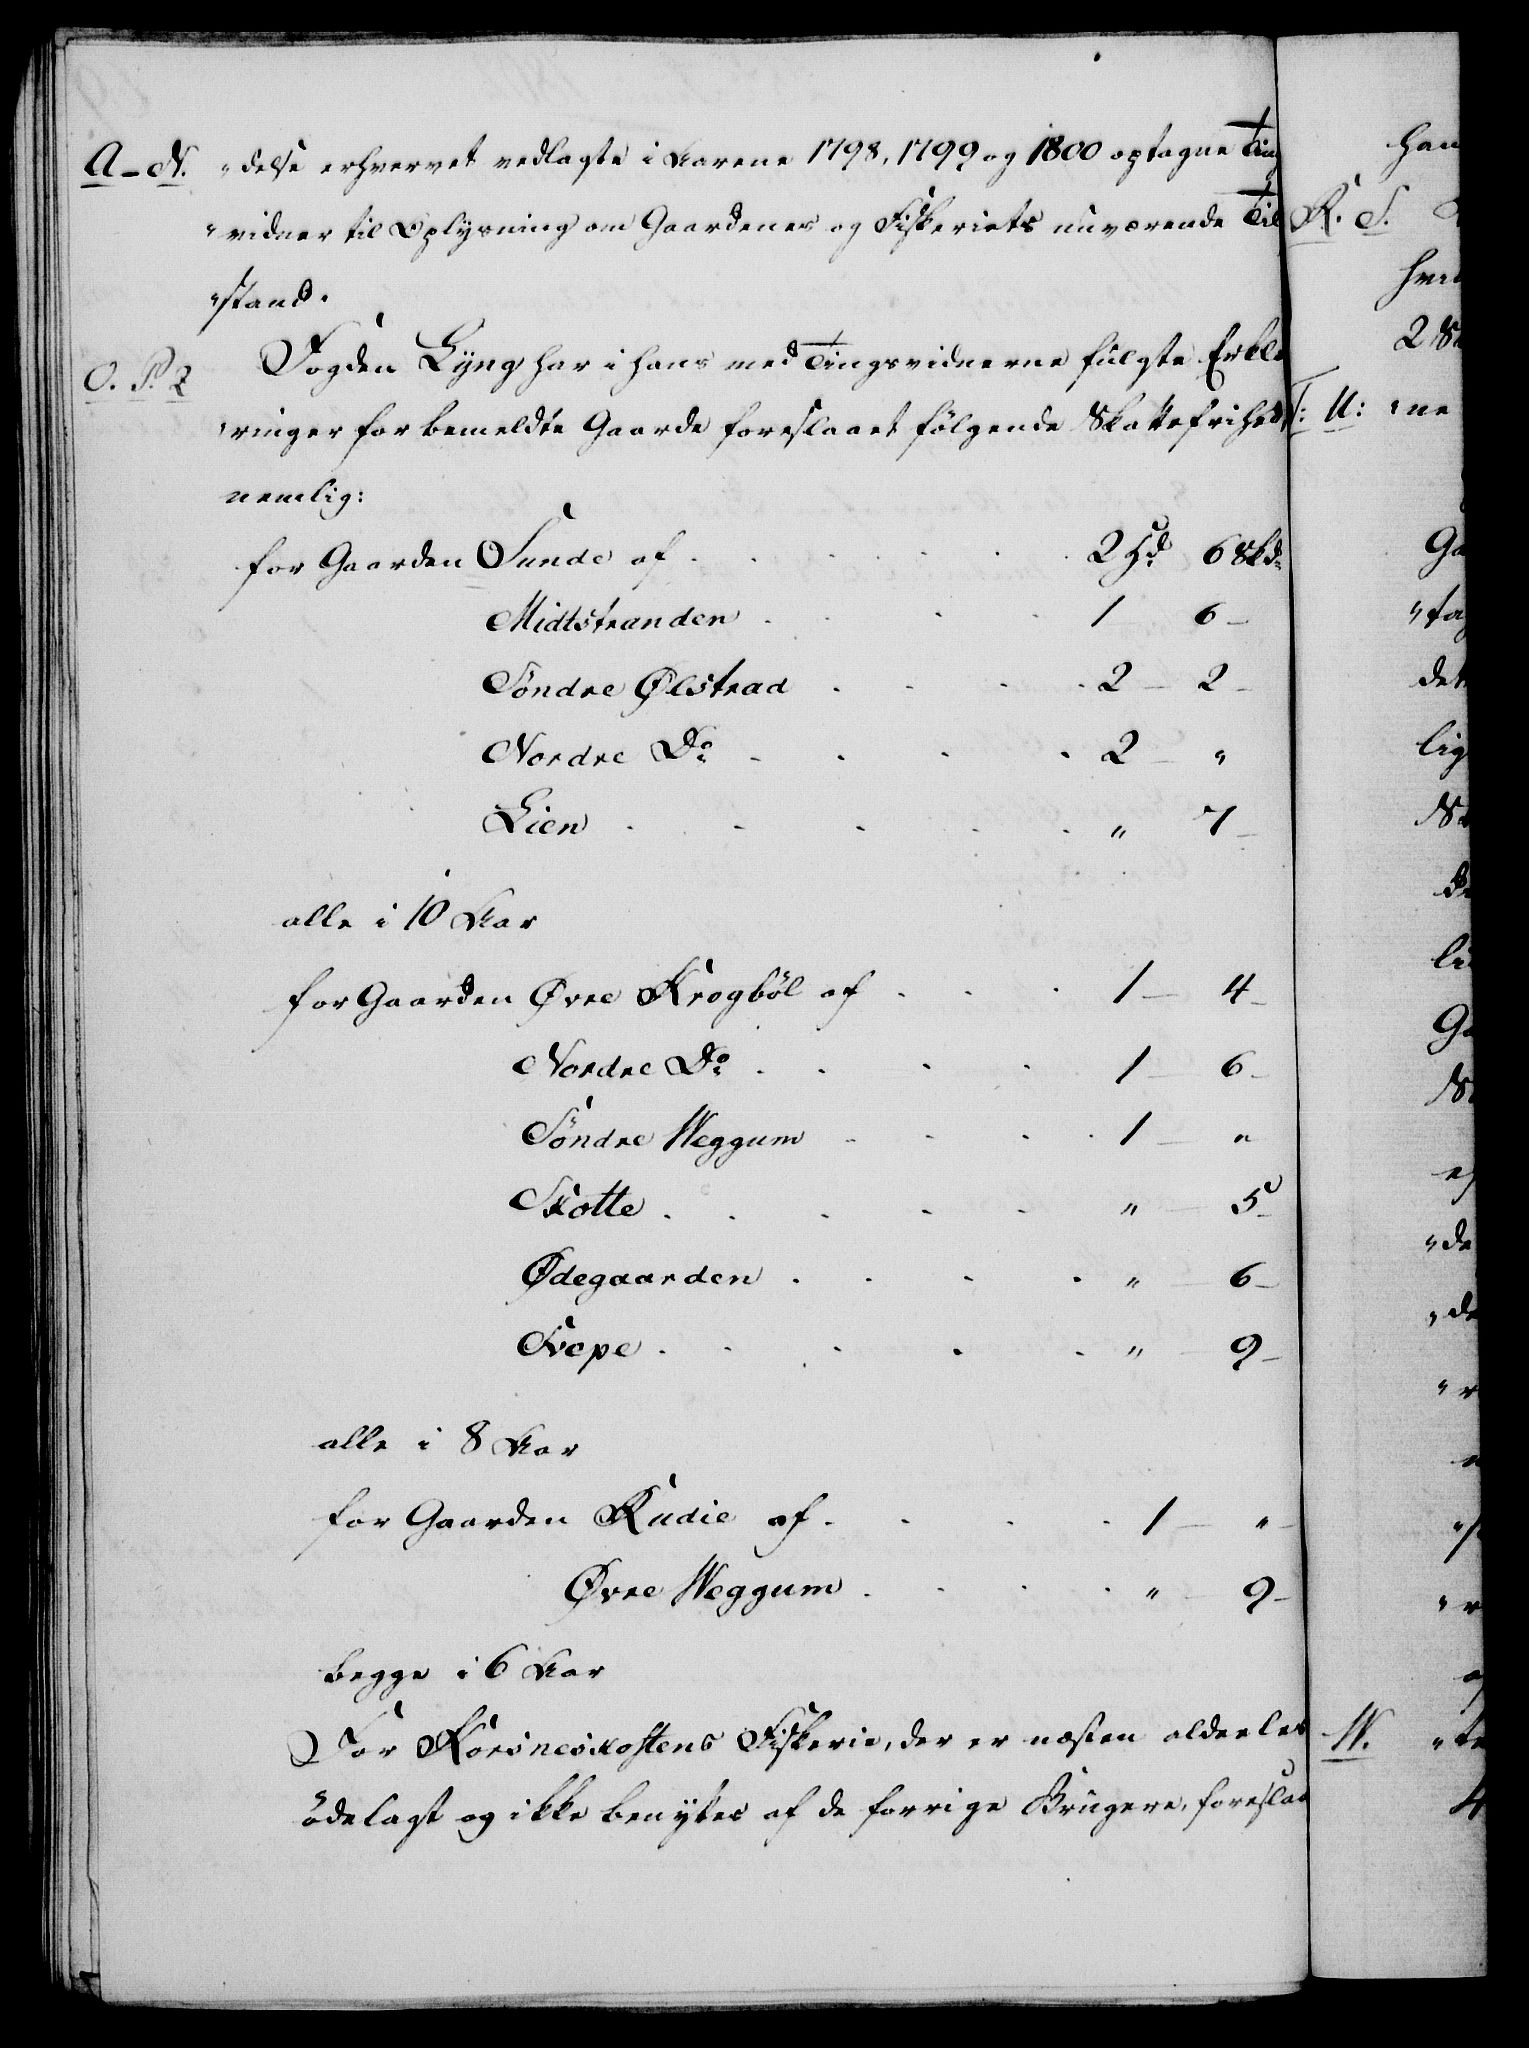 A–N. „delse erhvervet vedlagte i Aarene 1798, 1799 og 1800 optagne Ting
„vidner til Oplysning om Gaardenes og Fiskeriets nuværende Til
„stand.
O. P. Q Fogden Lÿng har i hans med Tingsvidnerne fulgte Erklæ
„ringer for bemeldte Gaarde foreslaaet følgende Skattefrihed
nemlig:
for Gaarden Sunde af . . . . . 2 Hd 6 Skd:
Midtstranden . . . 1 6 –
Söndre Ølstad . . . . 2 – 2 –
Nordre Do . . . . 2 – „
Lien . . . . . „ 7 –
alle i 10 Aar
for Gaarden Øvre Krogböl af . . . 1 – 4 –
Nordre Do . . . . 1 – 6 –
Söndre Weggum . . . . 1 – „
Skotte . . . . . „ – 5 –
Ødegaarden . . . . „ – 6 –
Svepe . . . . . „ – 9 –
alle i 8 Aar
for Gaarden Rudie af . . . . 1 – „ –
Øvre Weggum . . . . „ – 9 –
begge i 6 Aar
For Korsneskostens Fiskerie, der er næsten aldeeles
ödelagt og ikke benyttes af de forrige Brugere, foreslaa
han
R. S.
2
T: U: „ne
„tag
det
lig
„de
W.
4